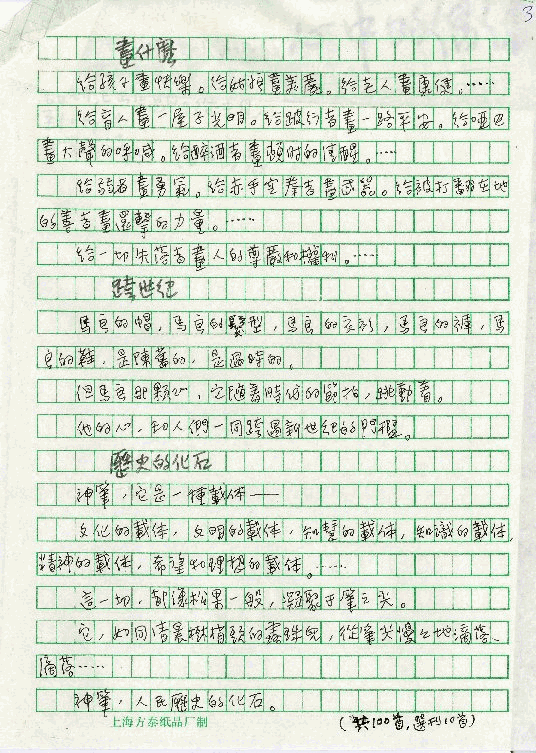 3
畫什麼
給孩子畫快樂。給姑娘畫美麗。給老人畫康健。……
給盲人畫一屋子光明。給跛行者畫一路平安。給啞巴
畫大聲的呼喊。給醉酒者畫頓時的清醒。……
給弱者畫勇氣。給赤手空拳者畫武器。給被打翻在地
的善者畫還擊的力量。……
給一切失落者畫人的尊嚴和權利。……
跨世纪
馬良的帽，馬良的髮型，馬良的衣衫，馬良的褲，馬
良的鞋，是陳舊的，是過時的。
但馬良那顆心，它隨著時代的節拍，跳動着。
他的心，和人們一同跨過新世纪的門檻。
歷史的化石
神筆，它是一種載体——
文化的載体，文明的載体，知慧的載体，知識的載体，
精神的載体，希望和理想的載体。……
這一切，都凍松果一般，凝聚于筆之尖。
它，如同清晨樹梢頭的露珠兒，從筆尖慢慢地滴落、
滴落……
神筆，人民歷史的化石。
（共100首，選刊10首）
上海方泰纸品厂制